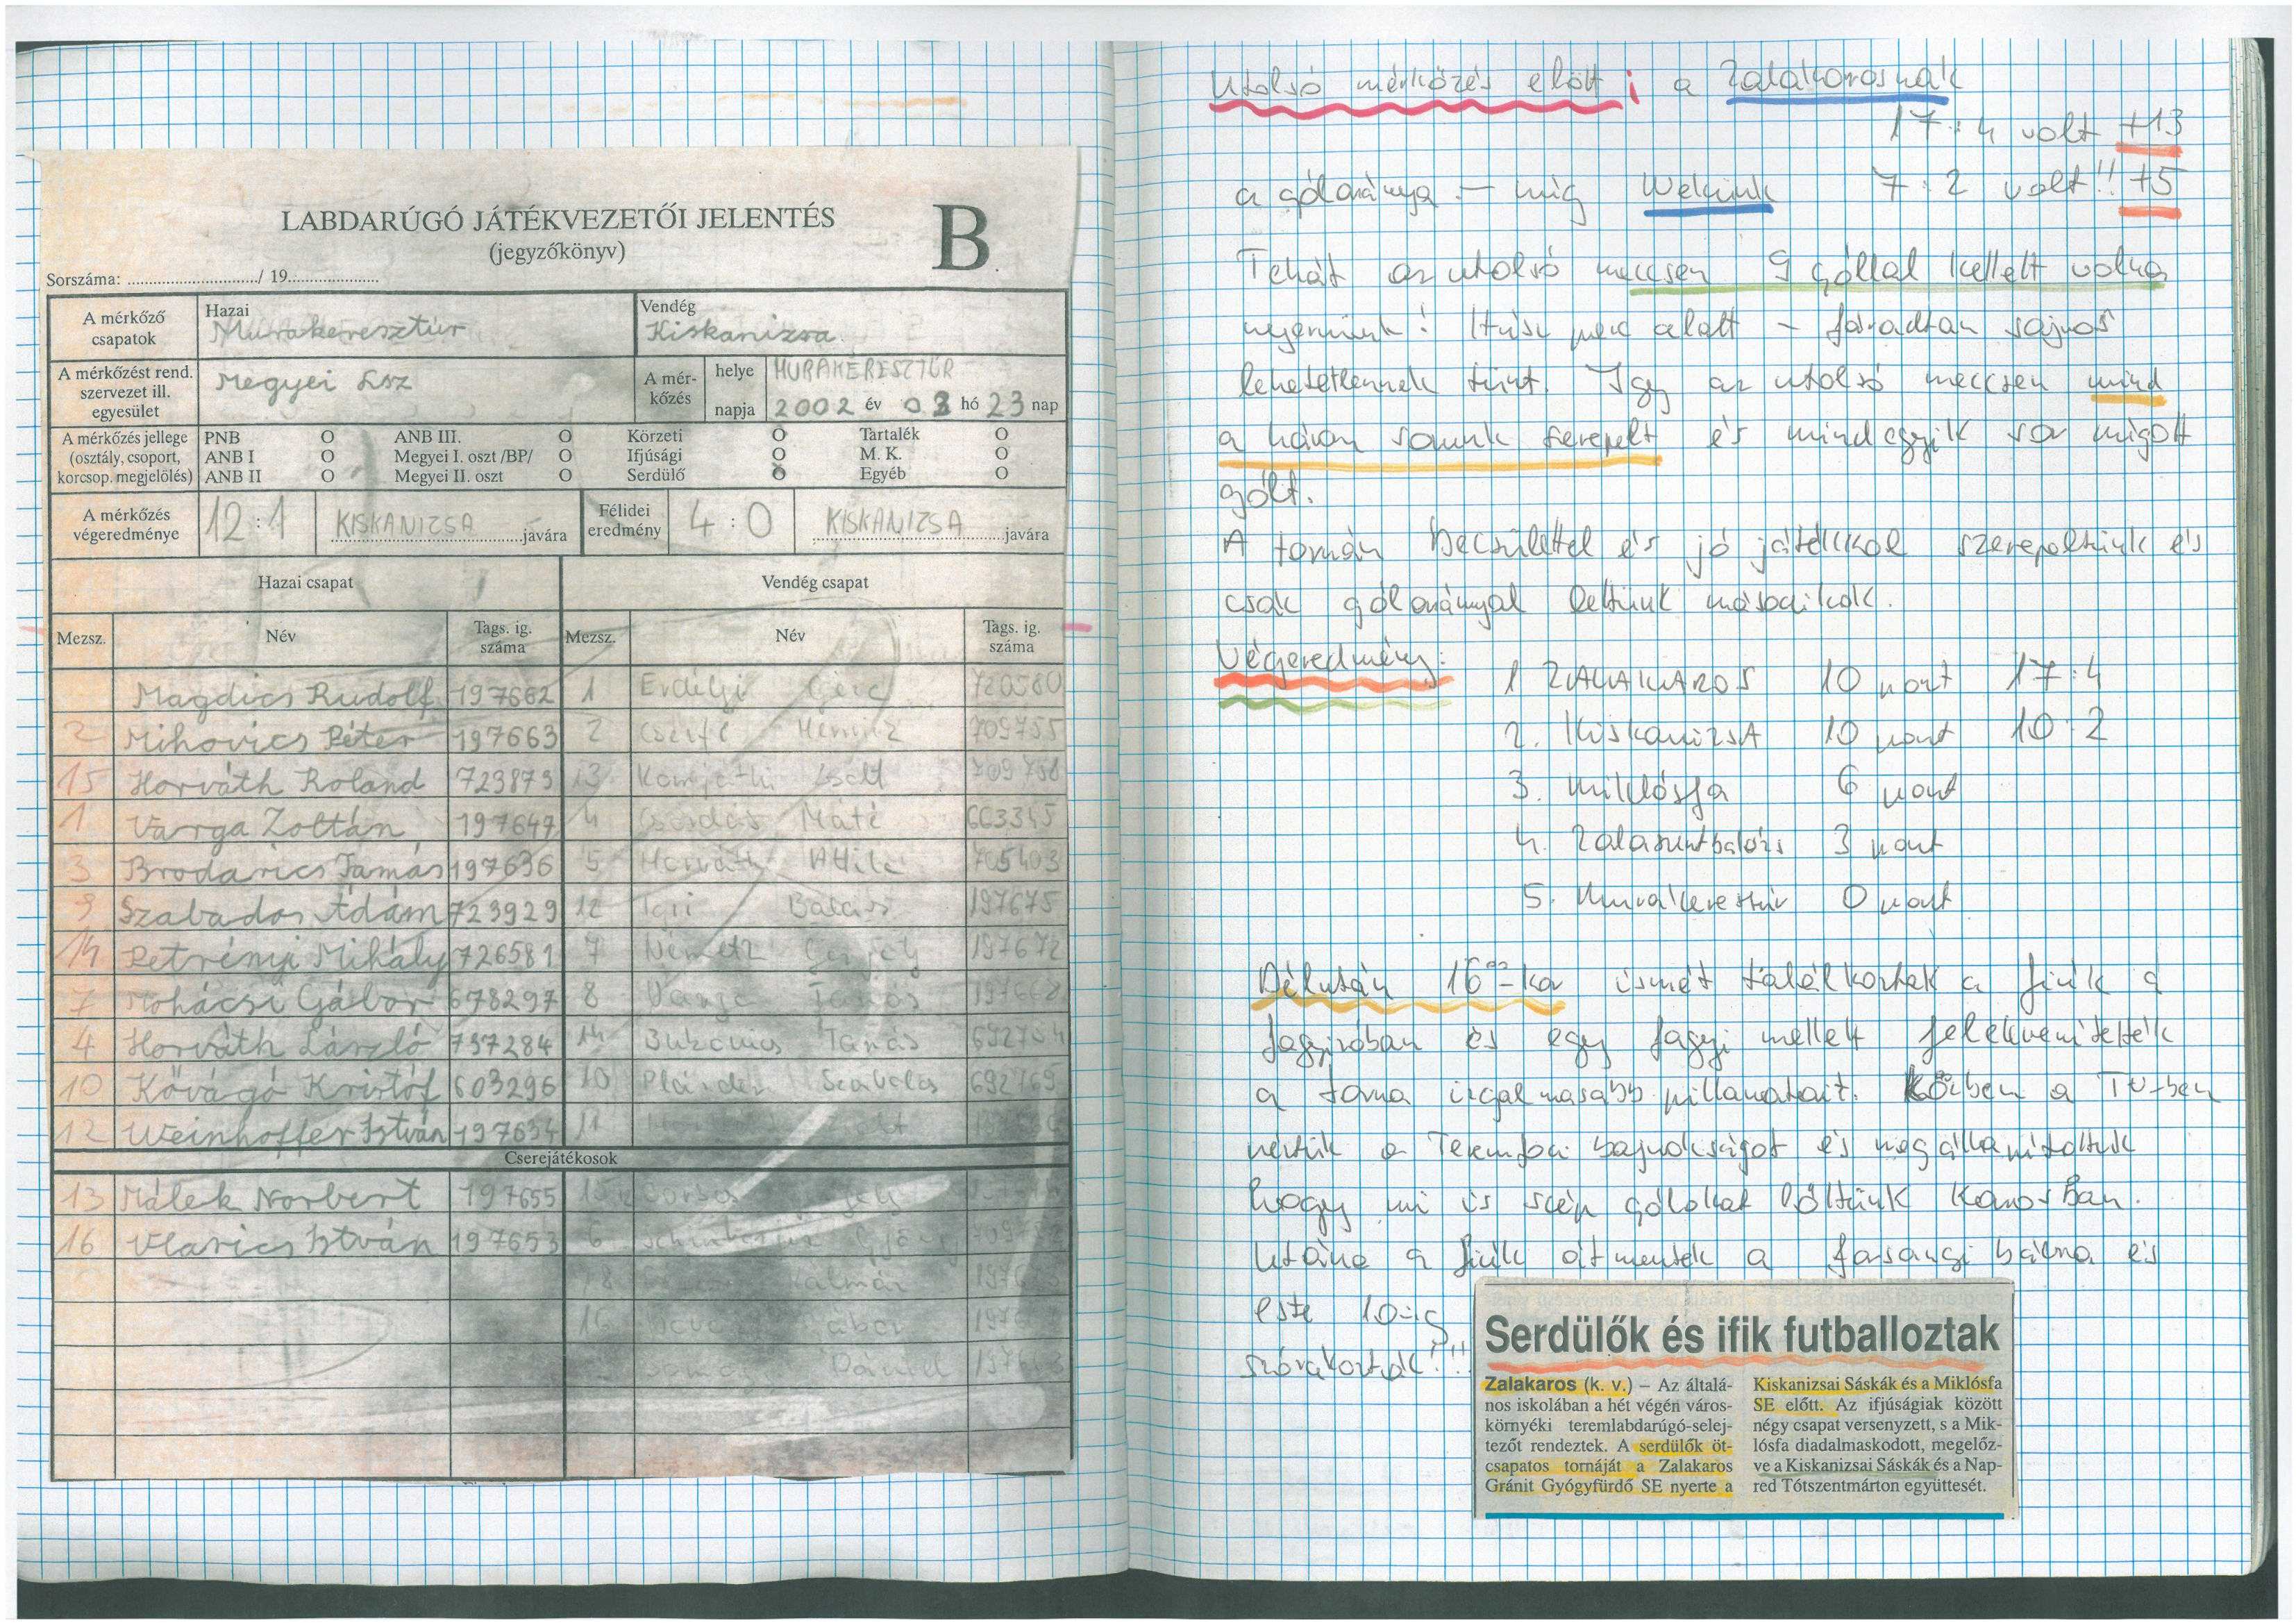 LABDARÚGÓ JÁTÉKVEZETŐI JELENTÉS
(jegyzőkönyv)
B
Sorszáma: ............................../ 19.....................
A mérkőző csapatok
Hazai
Murakeresztúr
Vendég
Kiskanizsa
A mérkőzést rend. szervezet ill. egyesület
Megyei Lsz
A mérkőzés
helye MURAKERESZTÚR
napja 2002 év 03 hó 23 nap
A mérkőzés jellege (osztály, csoport, korcsop. megjelölés)
PNB O ANB III. O Körzeti O Tartalék O
ANB I O Megyei I. oszt /BP/ O Ifjúsági O M. K. O
ANB II O Megyei II. oszt O Serdülő O Egyéb O
A mérkőzés végeredménye 12:1 KISKANIZSA javára
Félidei eredmény 4:0 KISKANIZSA javára
Hazai csapat Vendég csapat
Mezsz. Név Tags. ig. száma Mezsz. Név Tags. ig. száma
Magdics Rudolf 197662 1 Erdélyi 720580
2 Mihovics Péter 197663 2 Cserfő 709755
15 Horváth Roland 723879 13 Komjáthi Zsolt 709758
1 Varga Zoltán 197647 4 Csordás Máté 663345
3 Brodarics Tamás 197636 5 Horváth Attila 705403
9 Szabados Ádám 723929 12 Balázs 197675
14 Petrényi Mihály 726581 7 Németh Gergely 197672
7 Mohácsi Gábor 678297 8 Varga Tamás
4 Horváth László 737284 14 Bukovics Tamás 692704
10 Kővágó Kristóf 603296 10 Plánder Szabolcs 692765
12 Weinhoffer István 197634 11
Cserejátékosok
13 Málek Norbert 197655
16 Vlasics István 197653 6
Kálmán
16 Gábor
Dániel
Utolsó mérkőzés előtt; a Zalakarosnak
17:4 volt +13
a gólaránya – míg Nekünk 7:2 volt!! +5
Tehát az utolsó meccsen 9 góllal kellett volna
nyernünk! Húsz perc alatt – fáradtan sajnos
lehetetlennek tűnt. Így az utolsó meccsen mind
a három sorunk szerepelt és mindegyik sor rúgott
gólt.
A tornán becsülettel és jó játékkal szerepeltünk és
csak gólaránnyal lettünk másodikak.
Végeredmény:
1 ZALAKAROS 10 pont 17:4
2. KiskanizsA 10 pont 10:2
3. Miklósfa 6 pont
4. Zalaszentbalázs 3 pont
5. Murakeresztúr 0 pont
Délután 16⁰⁰-kor ismét találkoztak a fiúk a
fagyizóban és egy fagyi mellett felelevenítették
a torna izgalmasabb pillanatait. Közben a TV-ben
néztük a Teremfoci bajnokságot és megállapítottuk
hogy mi is szép gólokat lőttünk Karosban.
Utána a fiúk átmentek a farsangi bálra és
este 10-ig
szórakoztak!!!
Serdülők és ifik futballoztak
Zalakaros (k. v.) – Az általá-
nos iskolában a hét végén város-
környéki teremlabdarúgó-selej-
tezőt rendeztek. A serdülők öt-
csapatos tornáját a Zalakaros
Gránit Gyógyfürdő SE nyerte a
Kiskanizsai Sáskák és a Miklósfa
SE előtt. Az ifjúságiak között
négy csapat versenyzett, s a Mik-
lósfa diadalmaskodott, megelőz-
ve a Kiskanizsai Sáskák és a Nap-
red Tótszentmárton együttesét.